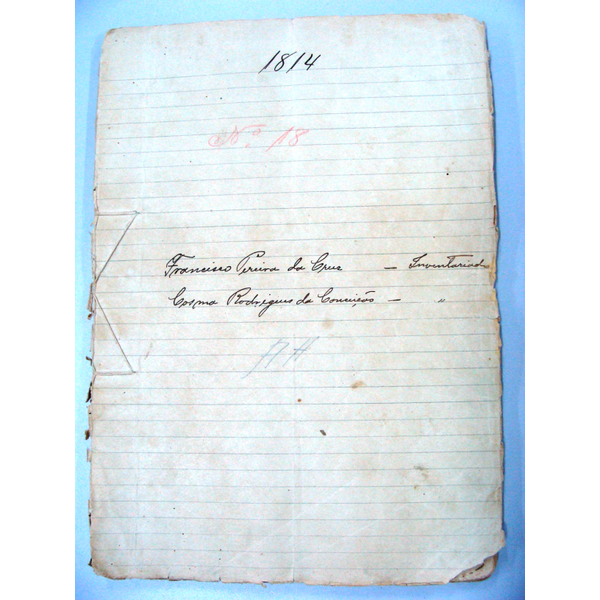 1814
Nº. 18
Francisco Pereira da Cruz — Inventariad
Cosma Rodrigues da Conceição — "
AH